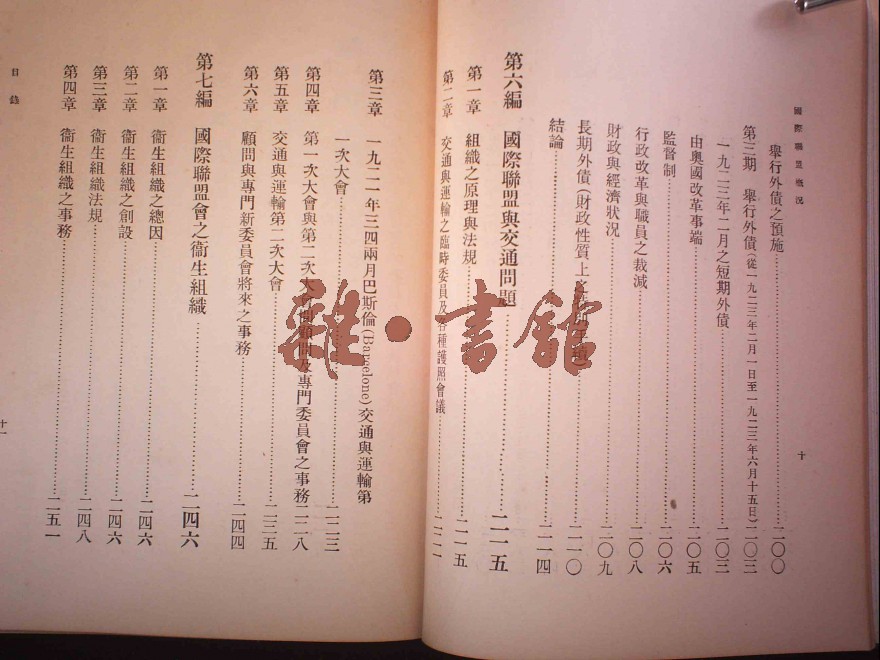 國際聯盟概況
十
舉行外債之預施……二〇〇
第三期　舉行外債(從一九二三年二月一日至一九二三年六月十五日)二〇三
一九二三年二月之短期外債……二〇三
由奧國改革事端……二〇五
監督制……二〇六
行政改革與職員之裁減……二〇八
財政與經濟狀況……二〇九
長期外債(財政性質上……二一〇
結論……二一四
第六編　國際聯盟與交通問題……二一五
第一章　組織之原理與法規……二一五
第二章　交通與運輸之臨時委員及各種護照會議……二二一
第三章　一九二一年三四兩月巴斯倫(Barcelone)交通與運輸第
一次大會……二二三
第四章　第一次大會與第二次大會間顧問及專門委員會之事務二二八
第五章　交通與運輸第二次大會……二三五
第六章　顧問與專門新委員會將來之事務……二四四
第七編　國際聯盟會之衞生組織……二四六
第一章　衞生組織之總因……二四六
第二章　衞生組織之創設……二四六
第三章　衞生組織法規……二四八
第四章　衞生組織之事務……二五一
目錄
十一
雜·書館